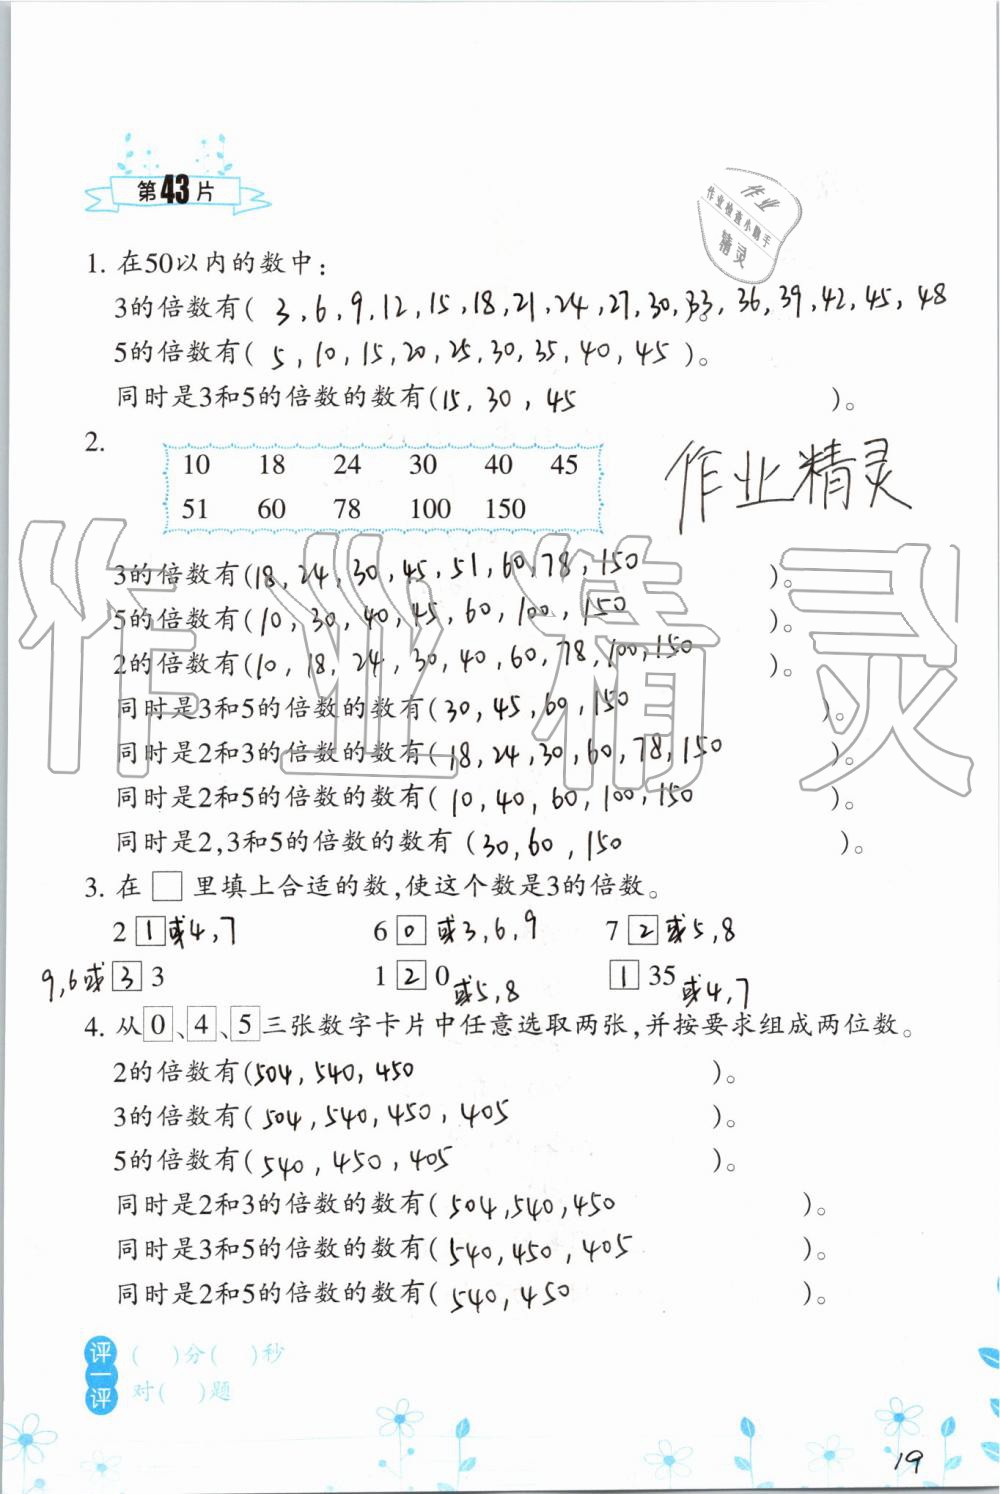 第43片
作业
作业检查小助手
精灵
1. 在50以内的数中:
3的倍数有( 3,6,9,12,15,18,21,24,27,30,33,36,39,42,45,48
)。
5的倍数有( 5,10,15,20,25,30,35,40,45 )。
同时是3和5的倍数的数有(15,30,45 )。
2.
10 18 24 30 40 45
51 60 78 100 150
作业精灵
3的倍数有(18,24,30,45,51,60,78,150 )。
5的倍数有(10,30,40,45,60,100,150 )。
2的倍数有(10,18,24,30,40,60,78,100,150 )。
同时是3和5的倍数的数有(30,45,60,150 )。
同时是2和3的倍数的数有(18,24,30,60,78,150 )。
同时是2和5的倍数的数有(10,40,60,100,150 )。
同时是2,3和5的倍数的数有(30,60,150 )。
作业精灵
3. 在□里填上合适的数,使这个数是3的倍数。
2 1 或4,7 6 0 或3,6,9 7 2 或5,8
9,6或 3 3 1 2 0 或5,8 1 35 或4,7
4. 从0、4、5三张数字卡片中任意选取两张,并按要求组成两位数。
2的倍数有(504,540,450 )。
3的倍数有(504,540,450,405 )。
5的倍数有(540,450,405 )。
同时是2和3的倍数的数有(504,540,450 )。
同时是3和5的倍数的数有(540,450,405 )。
同时是2和5的倍数的数有(540,450 )。
评一评
( )分( )秒
对( )题
19